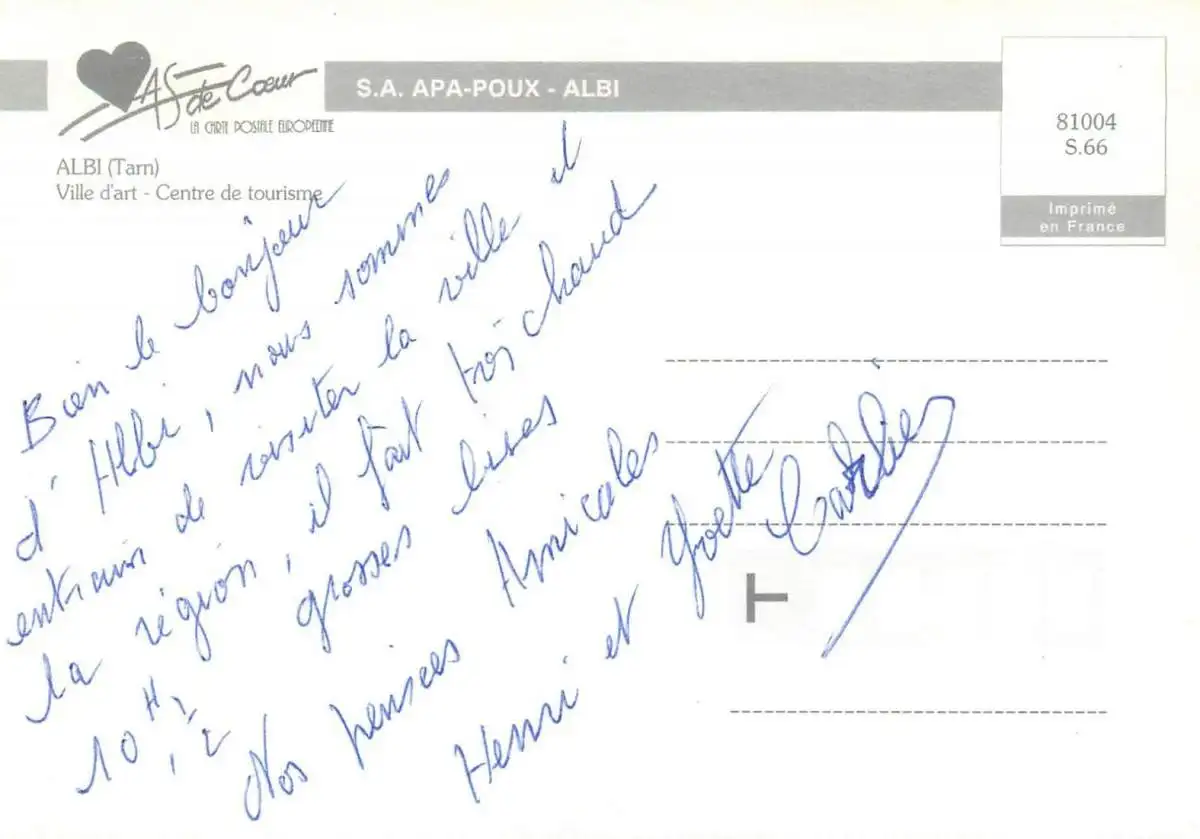 AS de Cœur
LA CARTE POSTALE EUROPEENNE
S.A. APA-POUX - ALBI
81004
S.66
Imprimé
en France
ALBI (Tarn)
Ville d'art - Centre de tourisme
Bien le bonjour
d'Albi, nous sommes
entrain de visiter la ville et
la région, il fait très chaud
10 H 1/2 grosses bises
Nos pensées Amicales
Henri et Yvette
T